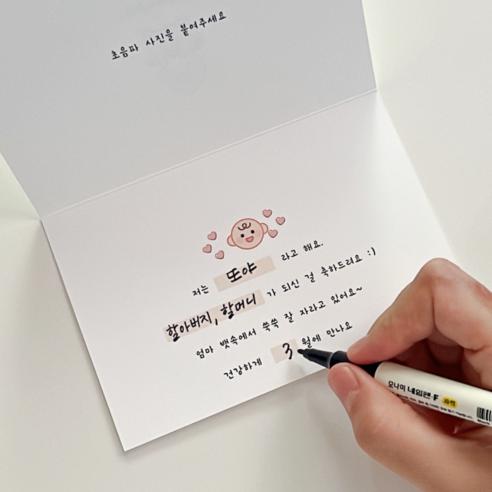 초음파 사진을 붙여주세요
저는 또야 라고 해요.
할아버지, 할머니 가 되신 걸 축하드려요 :)
엄마 뱃속에서 쑥쑥 잘 자라고 있어요~
건강하게 3 월에 만나요
모나미 네임펜 F